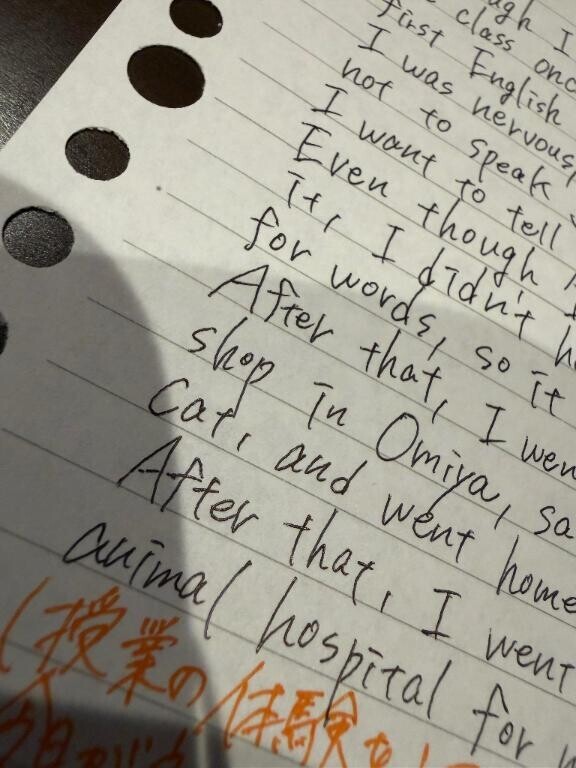 I
class
first English
I was nervous,
not to speak
I want to tell
Even though
it, I didn't
for words, so it
After that, I
shop in Omiya,
cat, and went home
After that, I went
animal hospital for
(授業の体験